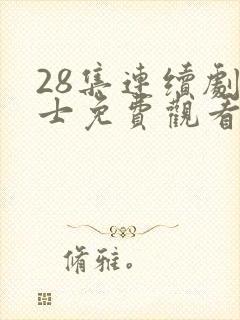 28集連續劇
士免費觀看
脩雅。